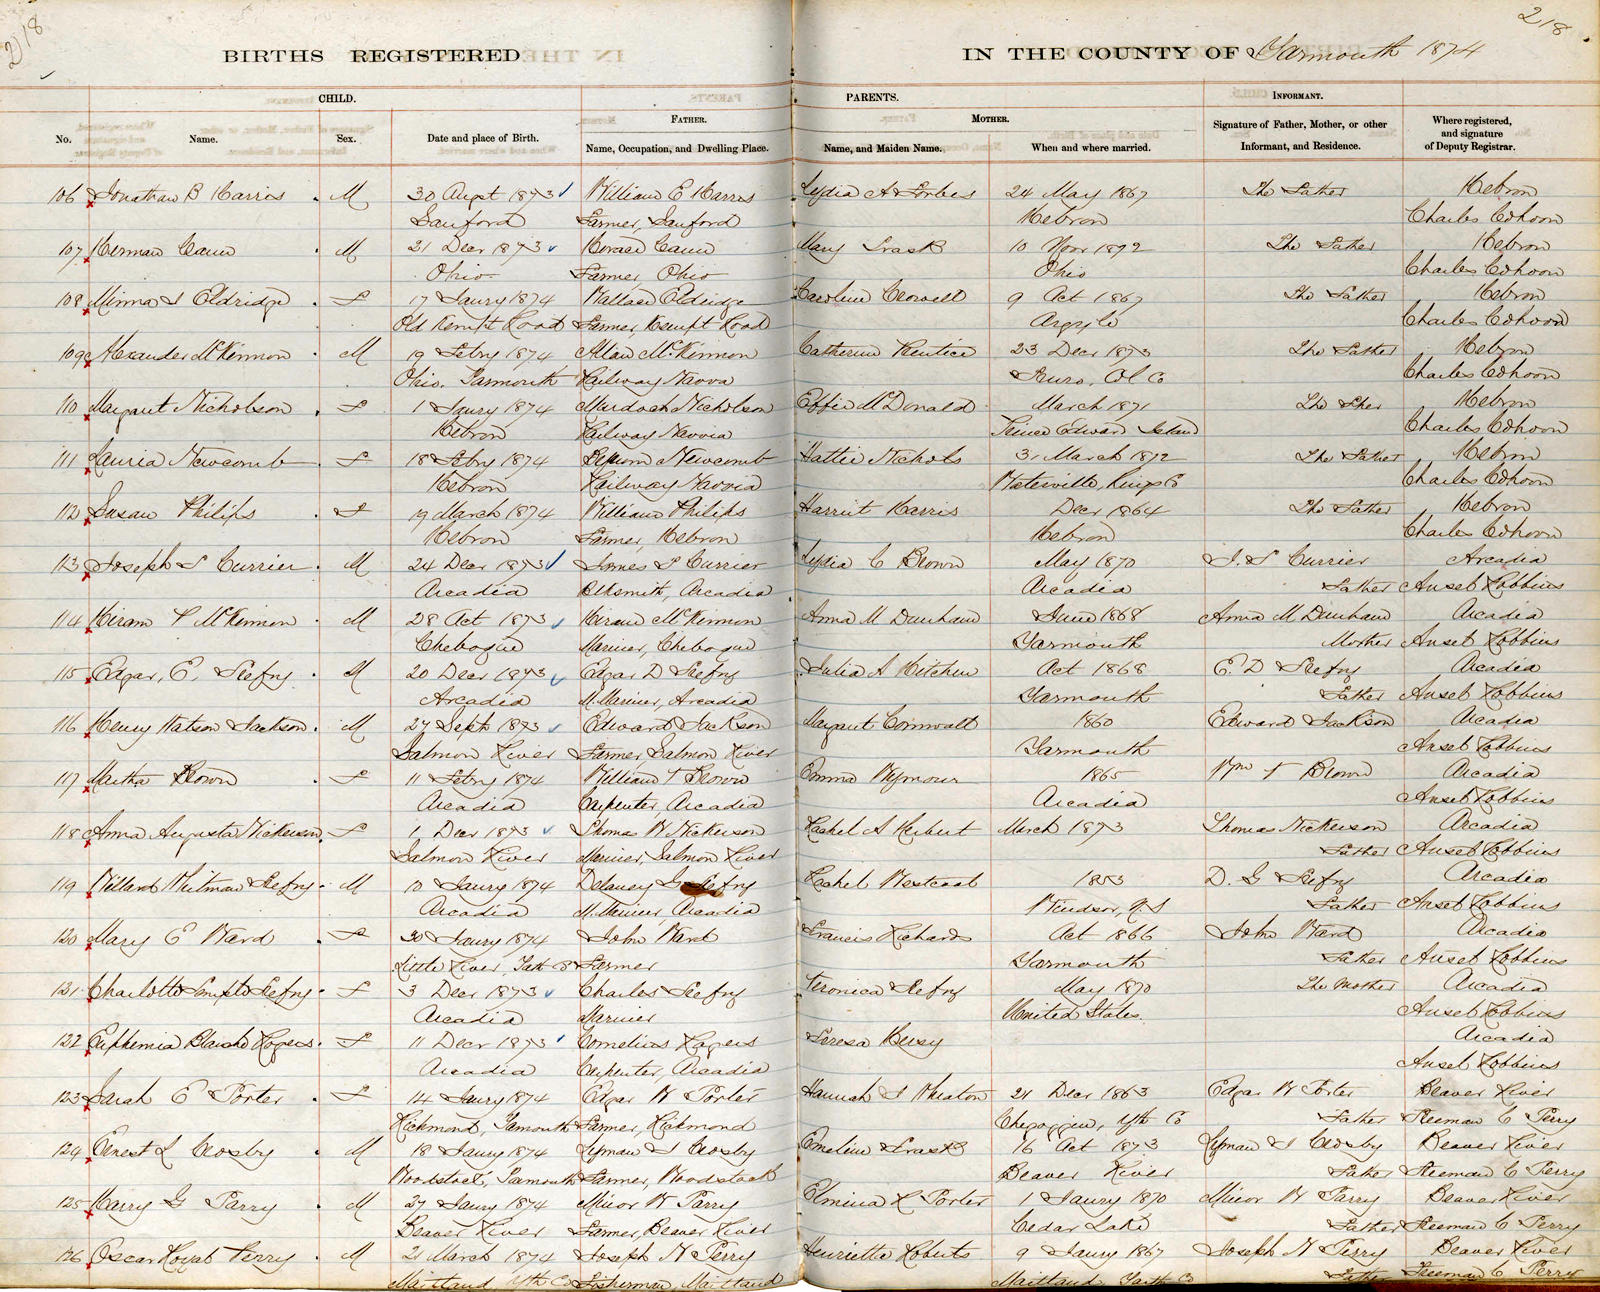 218
218
BIRTHS REGISTERED IN THE COUNTY OF Yarmouth 1874
CHILD. PARENTS. INFORMANT.
FATHER. MOTHER.
No. Name. Sex. Date and place of Birth. Name, Occupation, and Dwelling Place. Name, and Maiden Name. When and where married. Signature of Father, Mother, or other Informant, and Residence. Where registered, and signature of Deputy Registrar.
106 Jonathan B Harris M 30 Augst 1873 William E Harris Lydia A Forbes 24 May 1867 The Father Hebron
Sanford Farmer, Sanford Hebron Charles Cohoon
107 Herman Cann M 21 Decr 1873 Horace Cann Mary Trask 10 Novr 1872 The Father Hebron
Ohio Farmer, Ohio Ohio Charles Cohoon
108 Minna I Eldridge F 17 Jaury 1874 Wallace Eldridge Caroline Crowell 9 Oct 1867 The Father Hebron
Old Kempt Road Farmer, Kempt Road Argyle Charles Cohoon
109 Alexander McKinnon M 19 Febry 1874 Allan McKinnon Catherine Prentice 23 Decr 1873 The Father Hebron
Ohio. Yarmouth Railway Navva Truro, Col Co Charles Cohoon
110 Margaret Nicholson F 1 Jaury 1874 Murdoch Nicholson Effie McDonald March 1871 The Hebron
Hebron Railway Navvia Prince Edward Island Charles Cohoon
111 Lauria Newcomb F 18 Febry 1874 Newcomb Hattie Nichols 31 March 1872 The Father Hebron
Hebron Railway Navvia Waterville, Kings Co Charles Cohoon
112 Susan Philips F 19 March 1874 William Philips Harriet Harris Decr 1864 The Father Hebron
Hebron Farmer, Hebron Hebron Charles Cohoon
113 Joseph S Currier M 24 Decr 1873 James S Currier Lydia C Brown May 1870 J. S Currier Arcadia
Arcadia Blksmith, Arcadia Arcadia Father Ansel Robbins
114 Hiram P McKinnon M 28 Oct 1873 Hiram McKinnon Anna M Dunham June 1868 Anna M Dunham Arcadia
Chebogue Mariner, Chebogue Yarmouth Mother Ansel Robbins
115 Edgar, E, Reefry M 20 Decr 1873 Edgar D Reefry Julia A Hitchen Oct 1868 E. D Reefry Arcadia
Arcadia M. Mariner, Arcadia Yarmouth Father Ansel Robbins
116 Henry Watson Jackson M 27 Sept 1873 Edward Jackson Margaret Cornwall 1860 Edward Jackson Arcadia
Salmon River Farmer, Salmon River Yarmouth Ansel Robbins
117 Martha Brown F 11 Febry 1874 William T Brown Emma Wymour 1865 Wm T Brown Arcadia
Arcadia Carpenter, Arcadia Arcadia Ansel Robbins
118 Anna Augusta Nickerson F 1 Decr 1873 Thomas W Nickerson Rachel A Herbert March 1873 Thomas Nickerson Arcadia
Salmon River Mariner, Salmon River Father Ansel Robbins
119 Willard Whitman Reefry M 10 Jaury 1874 Delaney G Reefry Rachel Westcoat 1853 D. G Reefry Arcadia
Arcadia M. Mariner, Arcadia Windsor, N. S Father Ansel Robbins
120 Mary E Ward F 30 Jaury 1874 John Ward Francis Richards Oct 1866 John Ward Arcadia
Little River, Yarmouth Farmer Yarmouth Father Ansel Robbins
121 Charlotte Temple Reefry F 3 Decr 1873 Charles Reefry Veronica Reefry May 1870 The Mother Arcadia
Arcadia Mariner United States. Ansel Robbins
122 Euphemia Blanche Rogers F 11 Decr 1873 Cornelius Rogers Teresa Hersey Arcadia
Arcadia Carpenter, Arcadia Ansel Robbins
123 Sarah E Porter F 14 Jaury 1874 Edgar W Porter Hannah I Wheaton 21 Decr 1863 Edgar W Porter Beaver River
Richmond, Yarmouth Farmer, Richmond Chegoggin, Yth Co Father Freeman C Perry
124 Ernest L Crosby M 18 Jaury 1874 Lyman I Crosby Emeline Trask 16 Oct 1873 Lyman I Crosby Beaver River
Woodstock, Yarmouth Farmer, Woodstock Beaver River Father Freeman C Perry
125 Harry G Parry M 27 Jaury 1874 Minor W Parry Elmina R Porter 1 Jaury 1870 Minor W Parry Beaver River
Beaver River Farmer, Beaver River Cedar Lake Father Freeman C Perry
126 Oscar Royal Perry M 21 March 1874 Joseph N Perry Henrietta Roberts 9 Jaury 1867 Joseph N Perry Beaver River
Maitland, Yth Co Fisherman, Maitland Maitland Yarth Co Father Freeman C Perry